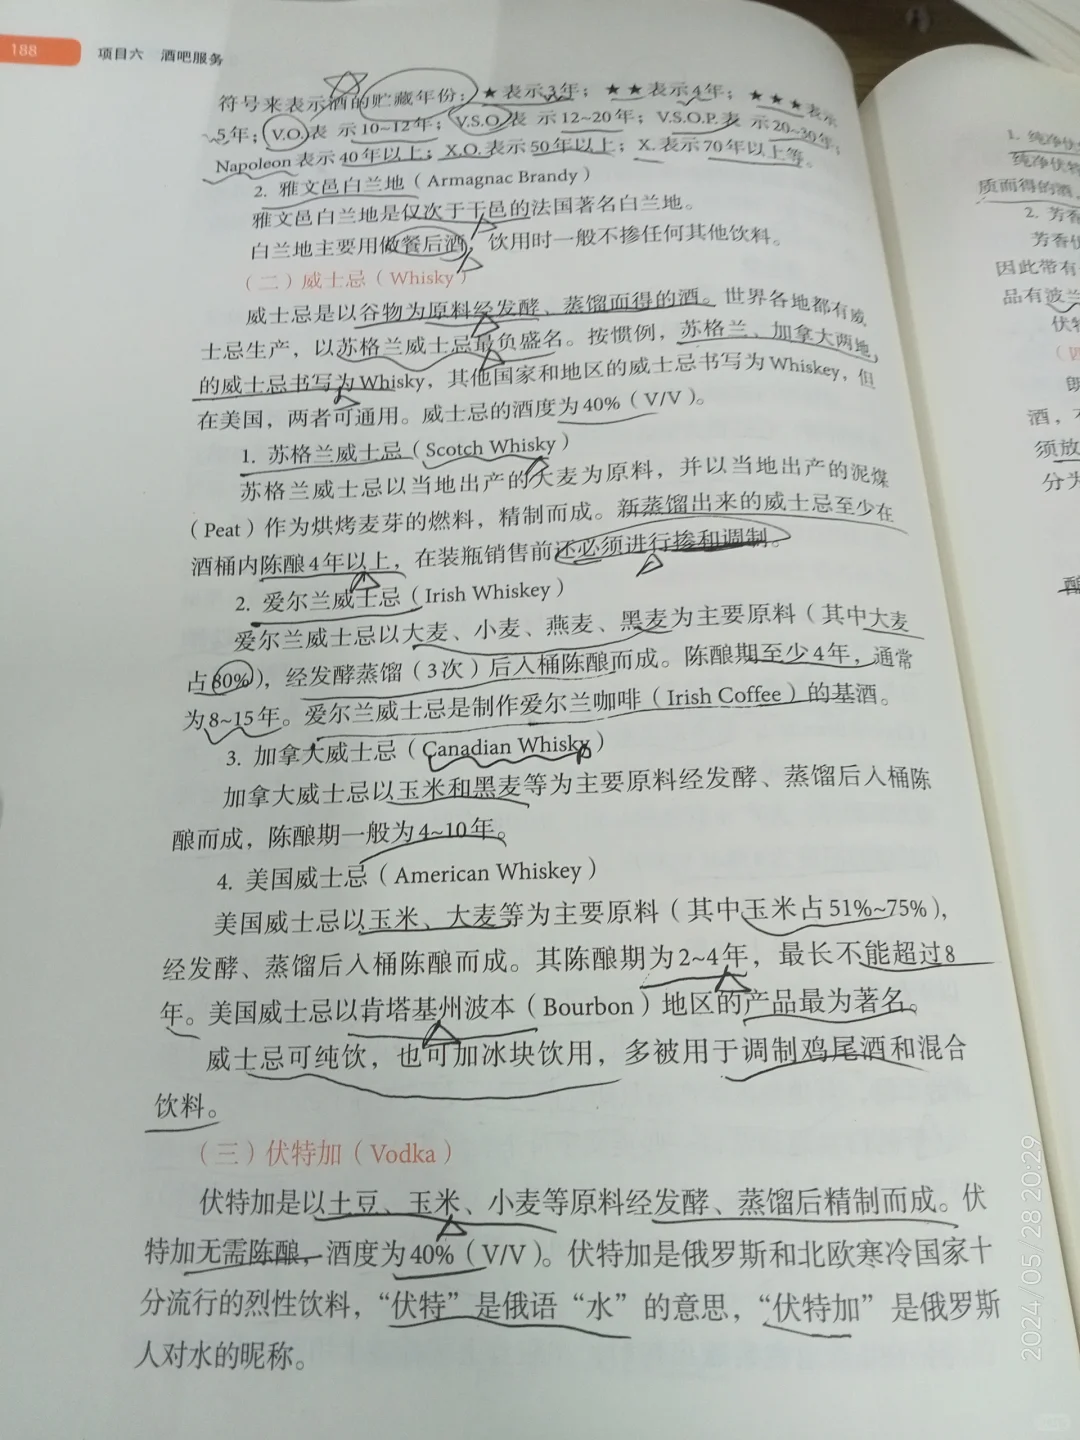 188
项目六 酒吧服务
符号来表示酒的贮藏年份：★表示3年；★★表示4年；★★★表示
5年；V.O.表示10~12年；V.S.O.表示12~20年；V.S.O.P.表示20~30年；
Napoleon表示40年以上；X.O.表示50年以上；X.表示70年以上等。
2. 雅文邑白兰地（Armagnac Brandy）
雅文邑白兰地是仅次于干邑的法国著名白兰地。
白兰地主要用做餐后酒，饮用时一般不掺任何其他饮料。
（二）威士忌（Whisky）
威士忌是以谷物为原料经发酵、蒸馏而得的酒。世界各地都有威
士忌生产，以苏格兰威士忌最负盛名。按惯例，苏格兰、加拿大两地
的威士忌书写为Whisky，其他国家和地区的威士忌书写为Whiskey，但
在美国，两者可通用。威士忌的酒度为40%（V/V）。
1. 苏格兰威士忌（Scotch Whisky）
苏格兰威士忌以当地出产的大麦为原料，并以当地出产的泥煤
（Peat）作为烘烤麦芽的燃料，精制而成。新蒸馏出来的威士忌至少在
酒桶内陈酿4年以上，在装瓶销售前还必须进行掺和调制。
2. 爱尔兰威士忌（Irish Whiskey）
爱尔兰威士忌以大麦、小麦、燕麦、黑麦为主要原料（其中大麦
占80%），经发酵蒸馏（3次）后入桶陈酿而成。陈酿期至少4年，通常
为8~15年。爱尔兰威士忌是制作爱尔兰咖啡（Irish Coffee）的基酒。
3. 加拿大威士忌（Canadian Whisky）
加拿大威士忌以玉米和黑麦等为主要原料经发酵、蒸馏后入桶陈
酿而成，陈酿期一般为4~10年。
4. 美国威士忌（American Whiskey）
美国威士忌以玉米、大麦等为主要原料（其中玉米占51%~75%），
经发酵、蒸馏后入桶陈酿而成。其陈酿期为2~4年，最长不能超过8
年。美国威士忌以肯塔基州波本（Bourbon）地区的产品最为著名。
威士忌可纯饮，也可加冰块饮用，多被用于调制鸡尾酒和混合
饮料。
（三）伏特加（Vodka）
伏特加是以土豆、玉米、小麦等原料经发酵、蒸馏后精制而成。伏
特加无需陈酿，酒度为40%（V/V）。伏特加是俄罗斯和北欧寒冷国家十
分流行的烈性饮料，“伏特”是俄语“水”的意思，“伏特加”是俄罗斯
人对水的昵称。
1. 纯净伏
纯净伏特
质而得的酒，
2. 芳香
芳香伏
因此带有
品有波兰
伏特
（四
酒，不
须放
分为
2024/05/28 20:29